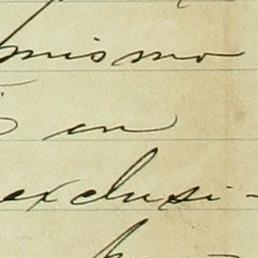 mismo
en
exclusi-